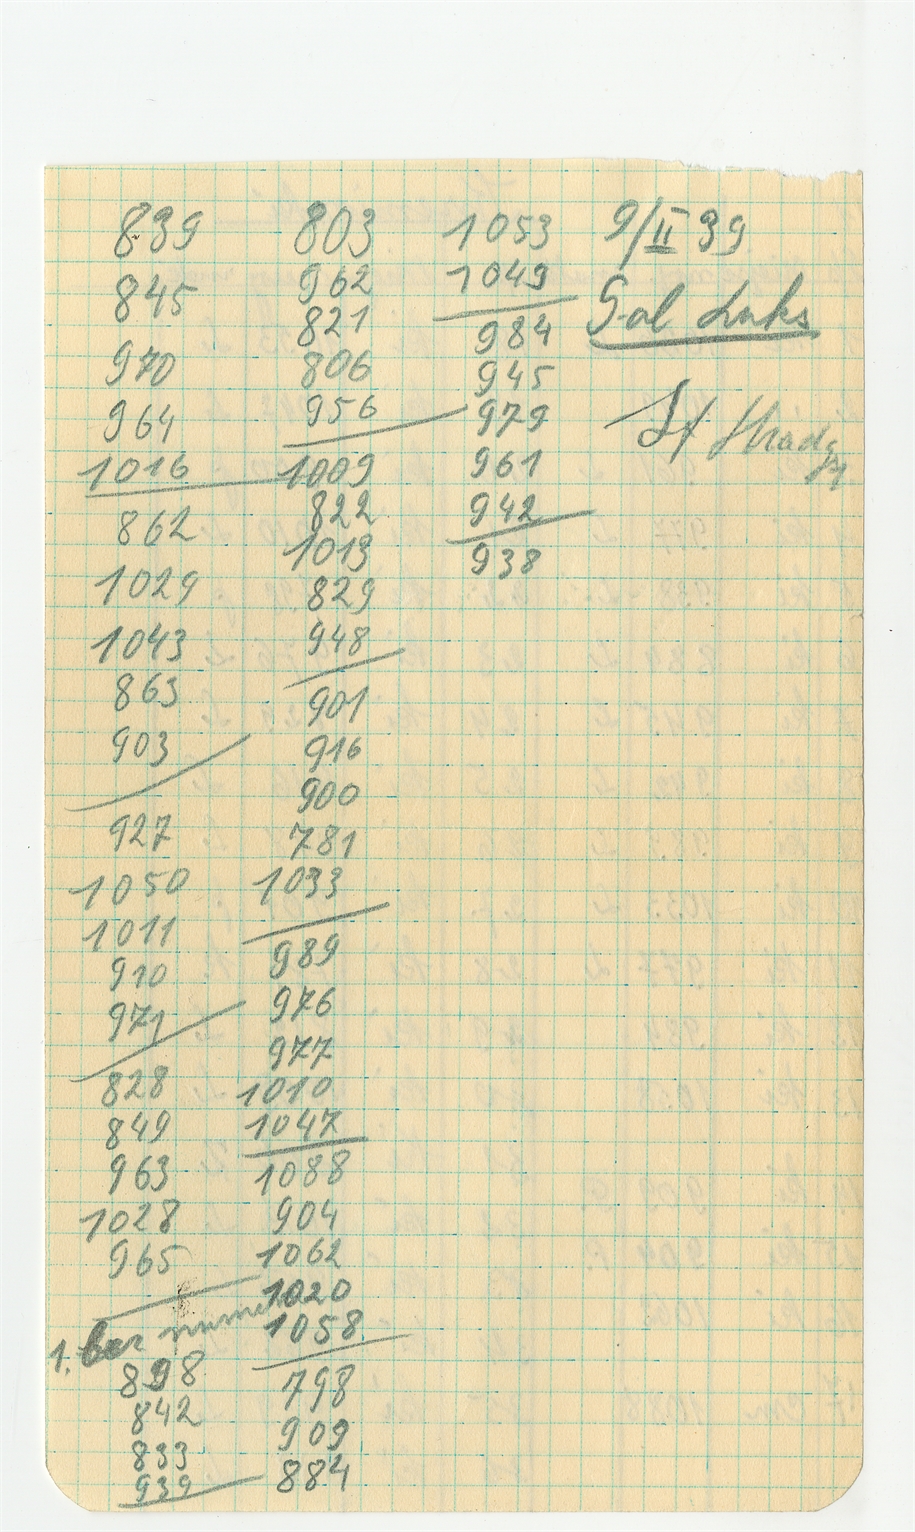 839
845
970
964
1016
862
1029
1043
863
903
927
1050
1011
910
971
828
849
963
1028
965
1. bez numeru
898
842
833
939
803
962
821
806
956
1009
822
1013
829
948
901
916
900
781
1033
989
976
977
1010
1047
1088
904
1062
1020
1058
798
909
884
1053
1049
984
945
979
961
942
938
9/II 39